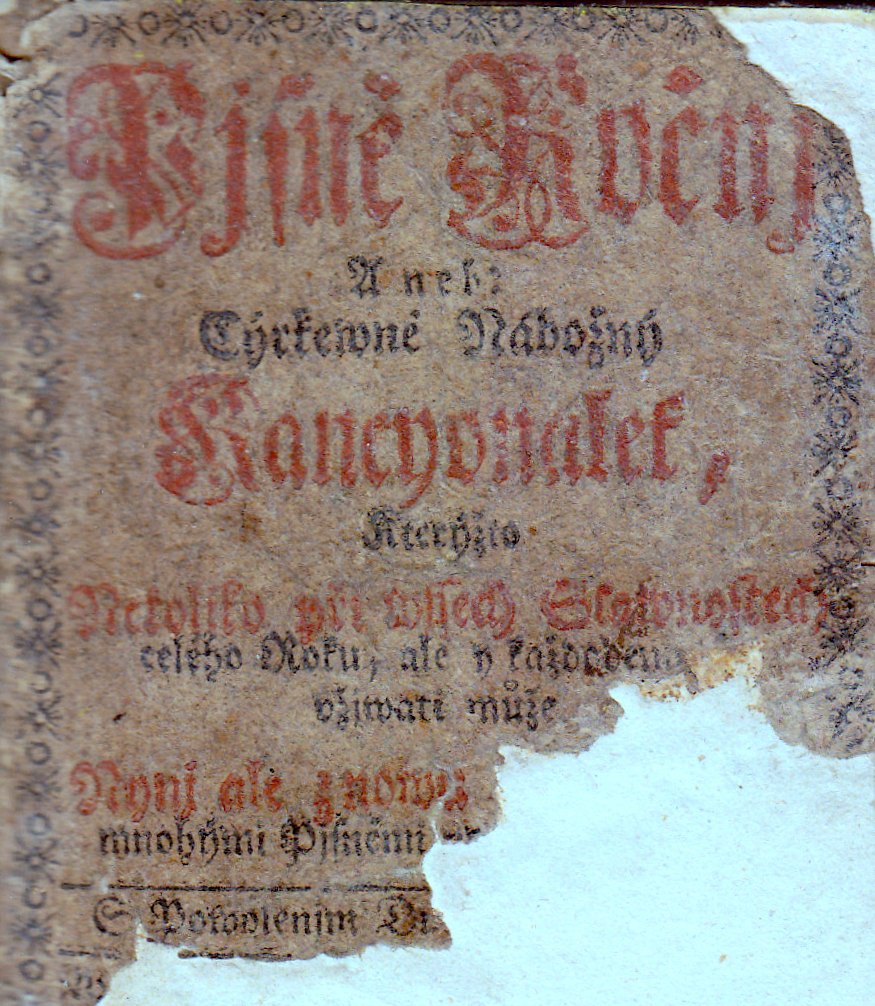 Pjsně Ročnj
Aneb:
Cýrkewně Nábožný
Kancyonálek,
Kterýžto
Nekoliko při wssech Slawnostech
celého Roku, ale y každodenně
vžjwati může
Nynj ale znowu
mnohými Pjsněmi
S Powolenjm